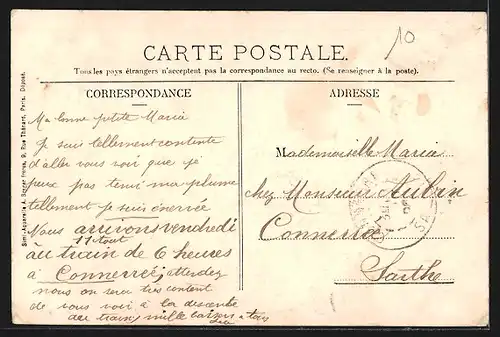 10
CARTE POSTALE.
Tous les pays étrangers n'acceptent pas la correspondance au recto. (Se renseigner à la poste).
CORRESPONDANCE
Ma bonne petite Marie
Je suis tellement contente
d'aller vous voir que je
peux pas tenir ma plume
tellement je suis énervée
Nous arrivons vendredi
11 aout
au train de 6 heures
à Connerré, attendez
nous on sera très content
de vous voir à la descente
du train, mille baisers a tous
ADRESSE
Mademoiselle Marie
chez Monsieur Aubin
Connerré
Sarthe
Simi-Aquarelle A. Breger frères, 9, Rue Thénard, Paris. Déposé.